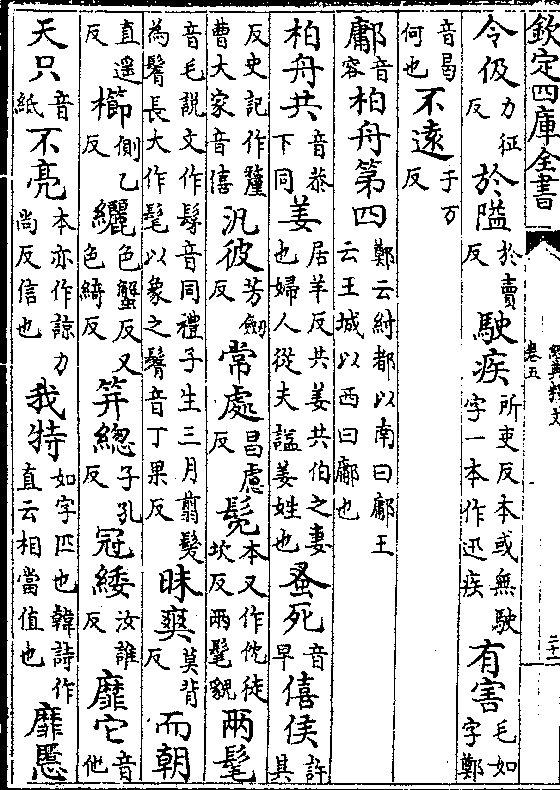 欽定四庫全書 經典釋文 卷五 二十一
令伋力征反於隘於賣反駛疾所吏反本或無駛字一本作迅疾有害毛如字鄭
音曷何也不遠于万反
鄘音容柏舟第四鄭云紂都以南曰鄘王云王城以西曰鄘也
柏舟共音恭下同姜居羊反共姜共伯之妻也婦人從夫謚姜姓也蚤死音早僖侯許其
反史記作釐曹大家音僖汎彼芳劒反常處昌慮反髧本又作忱徒坎反兩髦貌兩髦
音毛説文作髳音同禮子生三月翦髮為鬌長大作髦以象之鬌音丁果反昧爽莫背反而朝
直遥反櫛側乙反纚色蟹反又色綺反笄總子孔反冠緌汝誰反靡它音他
天只音紙不亮本亦作諒力尚反信也我特如字匹也韓詩作直云相當值也靡慝